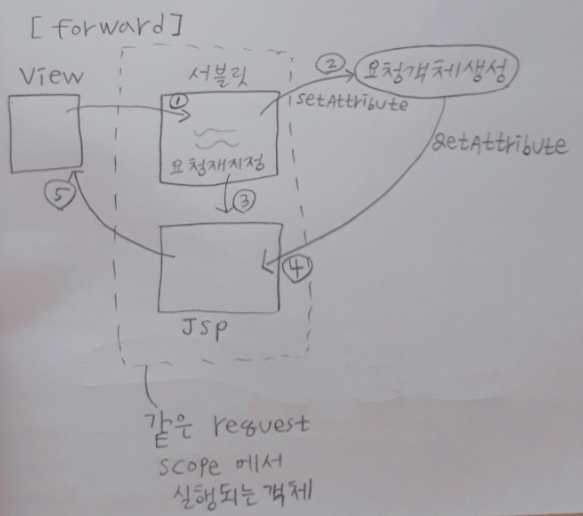 [forward]
View
서블릿
①
②
요청객체생성
setAttribute
getAttribute
요청재지정
③
④
⑤
JSP
같은 request
scope에서
실행되는객체